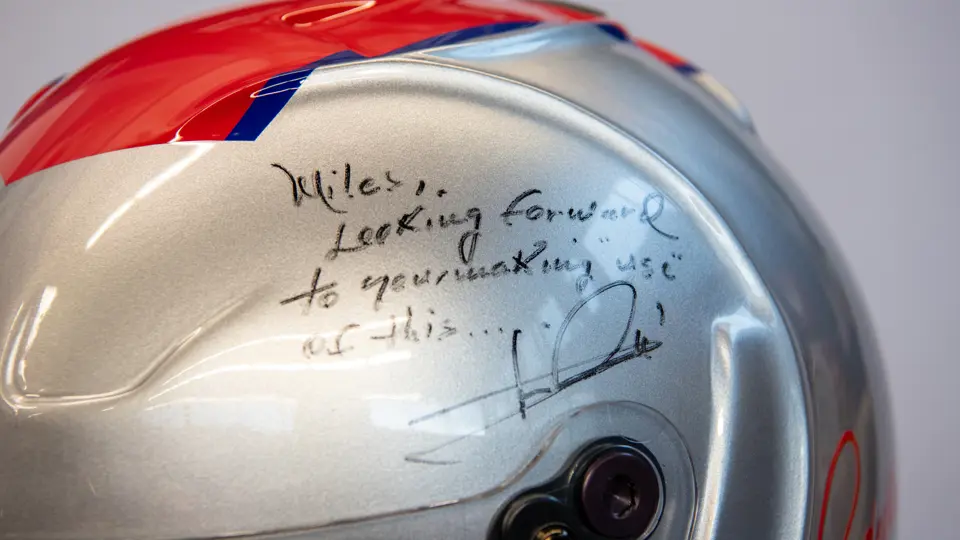 Miles,.
Looking forward
to your making "use"
of this.....